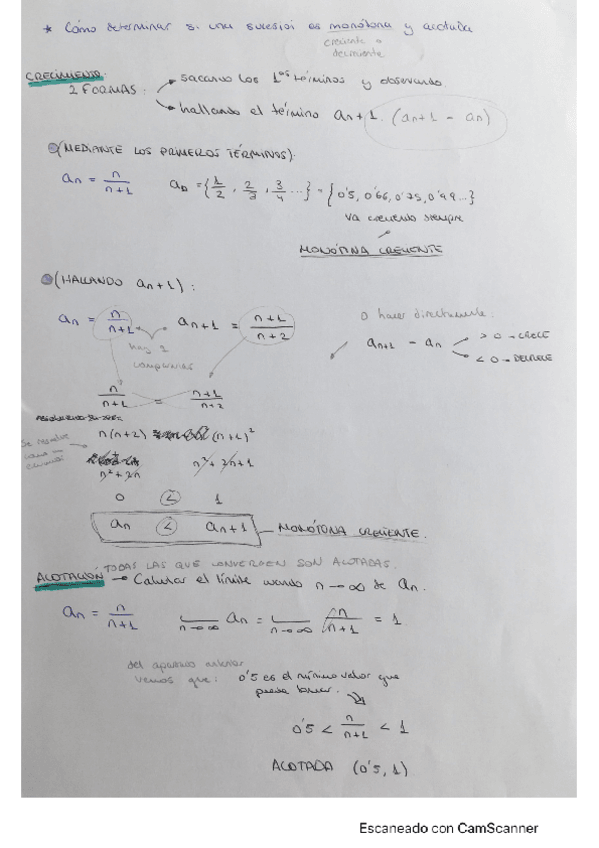 * Cómo determinar si una sucesión es monótona y acotada
creciente o
decreciente
CRECIMIENTO:
2 FORMAS:
→ sacando los 1os términos y observando.
→ hallando el término an+1. (an+1 - an)
(MEDIANTE LOS PRIMEROS TÉRMINOS).
an = n/n+1 an = {1/2, 2/3, 3/4 ...} = {0'5, 0'66, 0'75, 0'99...}
va creciendo siempre
MONÓTONA CRECIENTE
(HALLANDO an+1):
an = n/n+1 an+1 = n+1/n+2
o hacer directamente:
an+1 - an > 0 → CRECE
< 0 → DECRECE
hay q
compararlas
n/n+1 = n+1/n+2
n(n+2) (n+1)²
se resuelve
como
n² + 2n n² + 2n + 1
0 < 1
an < an+1 MONÓTONA CRECIENTE.
TODAS LAS QUE CONVERGEN SON ACOTADAS.
ACOTACIÓN → Calcular el límite cuando n → ∞ de an.
an = n/n+1 n→∞ an = n→∞ n/n+1 = 1
del apartado anterior
vemos que: 0'5 es el mínimo valor que
puede tomar.
0'5 < n/n+1 < 1
ACOTADA (0'5, 1)
Escaneado con CamScanner